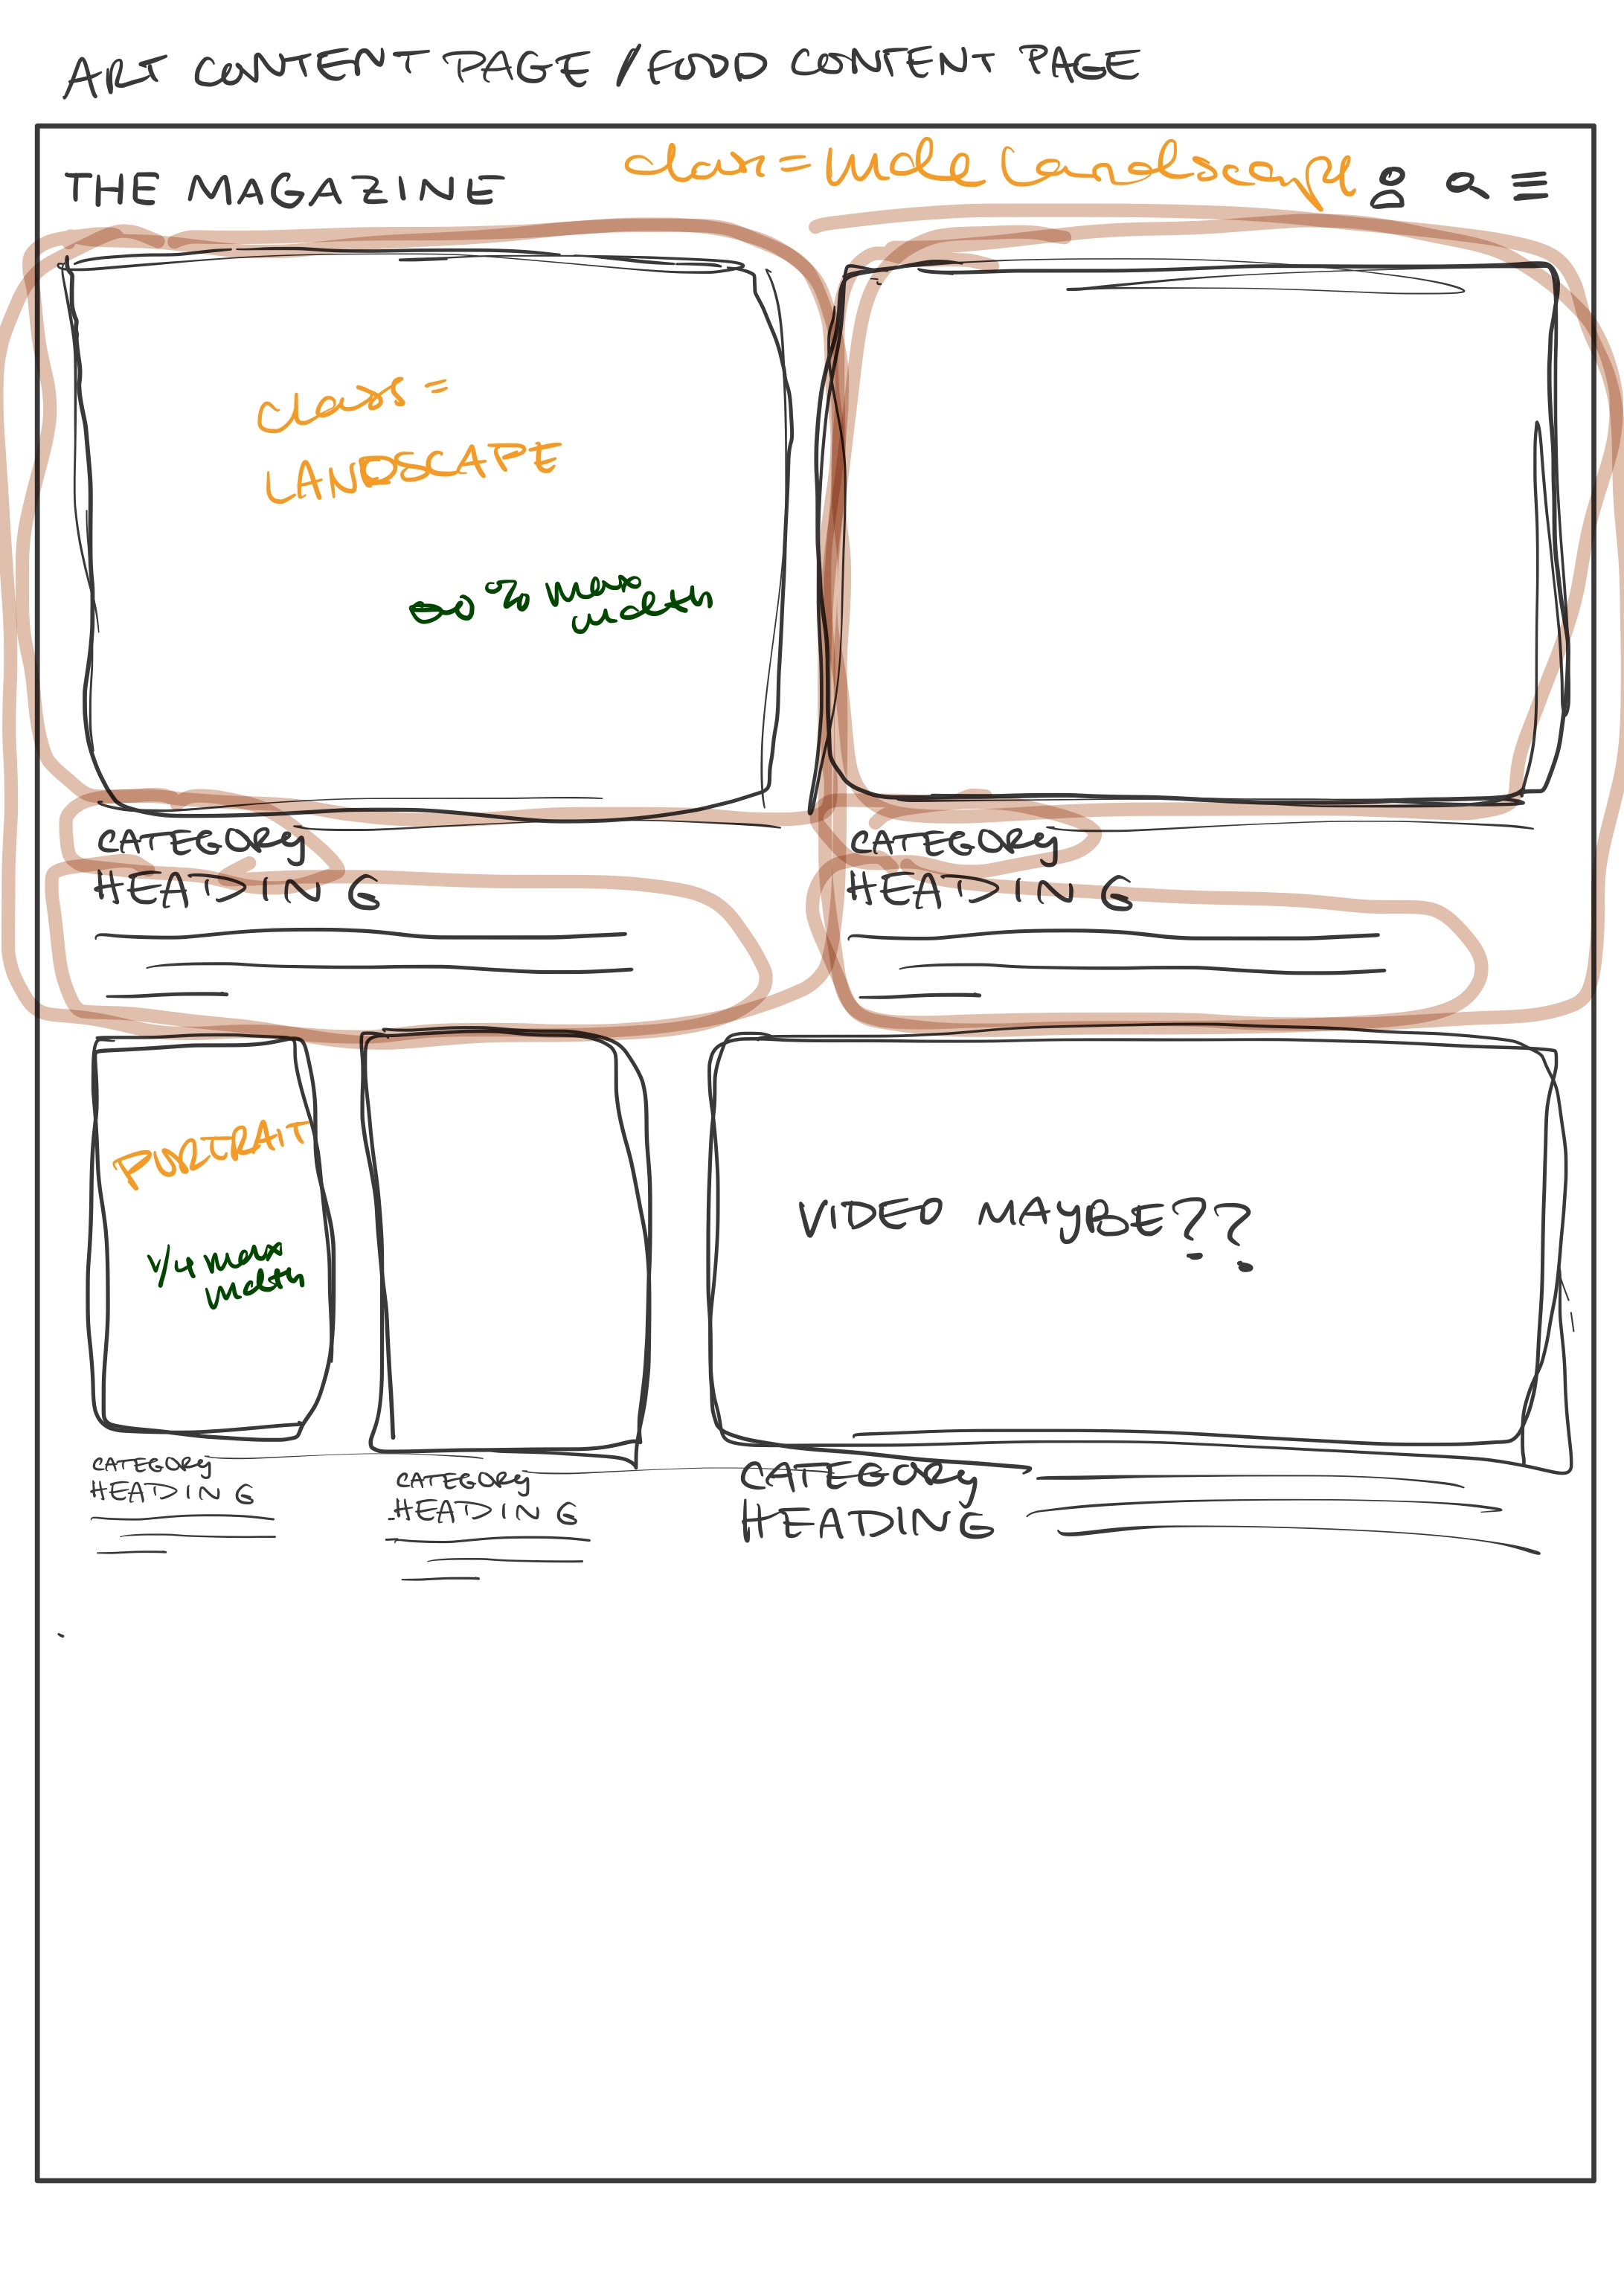 ART CONTENT PAGE / FOOD CONTENT PAGE
THE MAGAZINE
class = wide landscape
class =
LANDSCAPE
% max
width
CATEGORY
HEADING
CATEGORY
HEADING
PORTRAIT
1/4 max
width
VIDEO MAYBE??
CATEGORY
HEADING
CATEGORY
HEADING
CATEGORY
HEADING